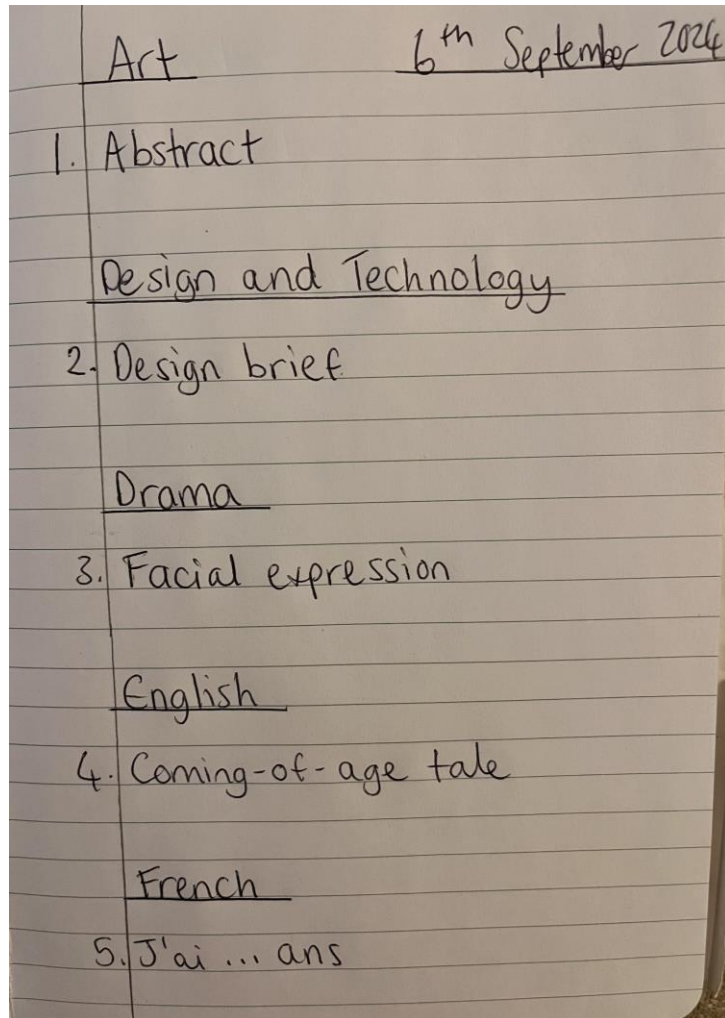 Art 6th September 2024
1. Abstract
Design and Technology
2. Design brief
Drama
3. Facial expression
English
4. Coming-of-age tale
French
5. J'ai ... ans